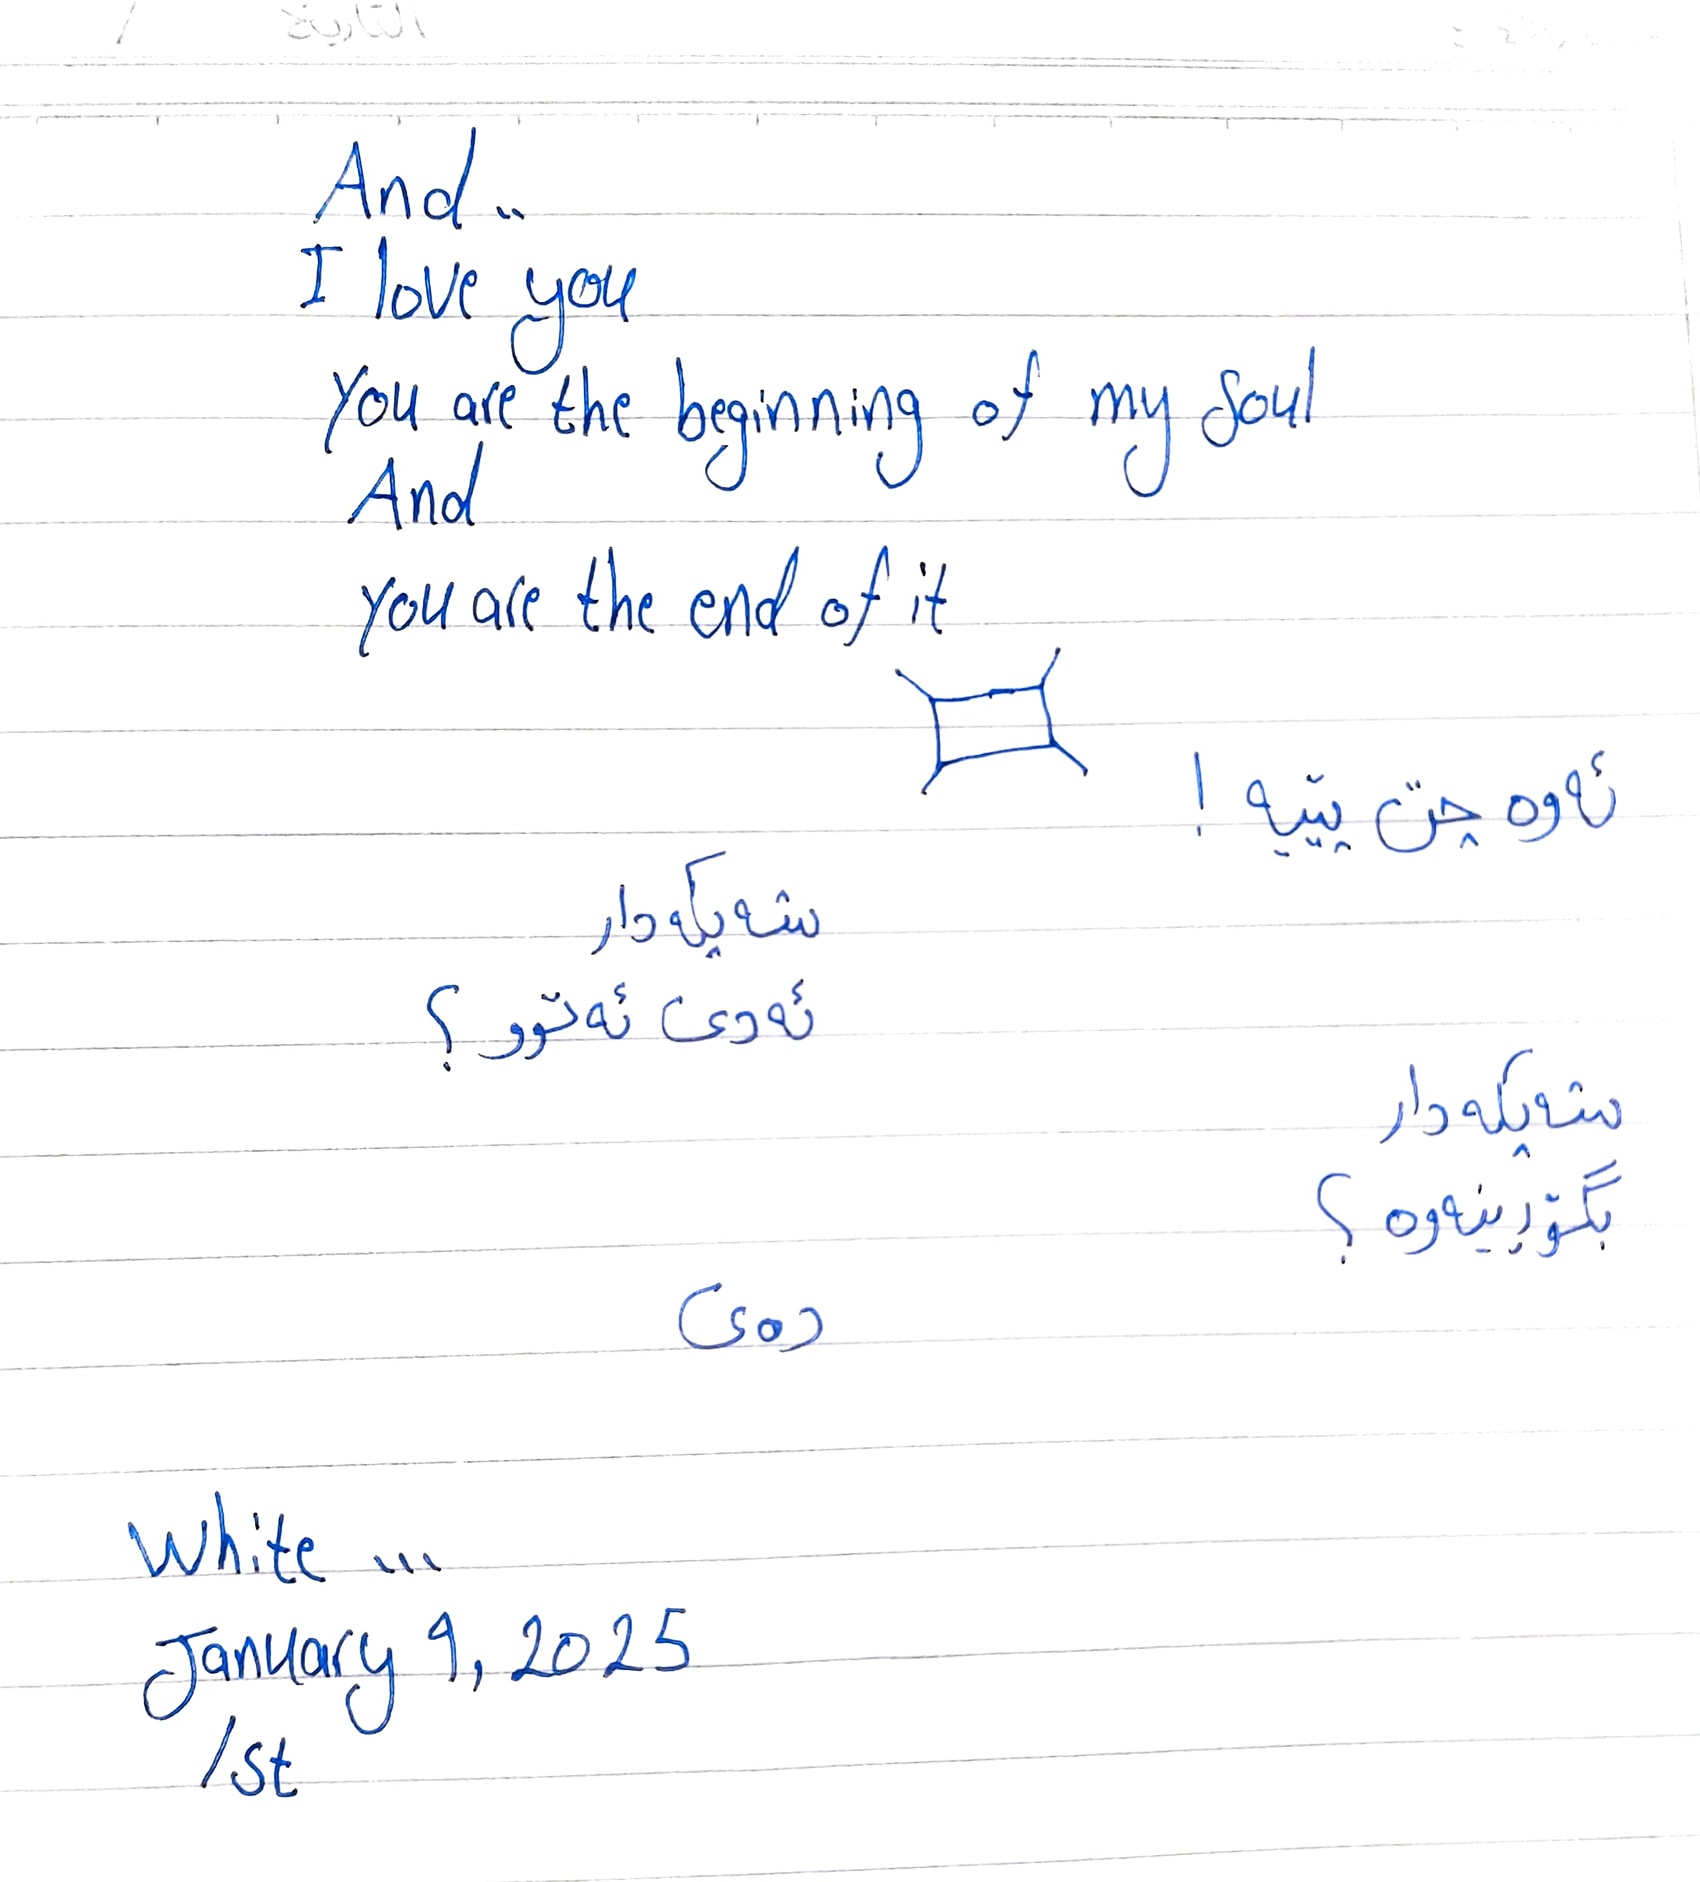 التاريخ /
And..
I love you
You are the beginning of my soul
And
you are the end of it
ئەوە چیت پێیە !
شەپکەدار
ئەدی ئەتوو ؟
شەپکەدار
بگۆڕینەوە ؟
دەی
White ...
January 9, 2025
1st